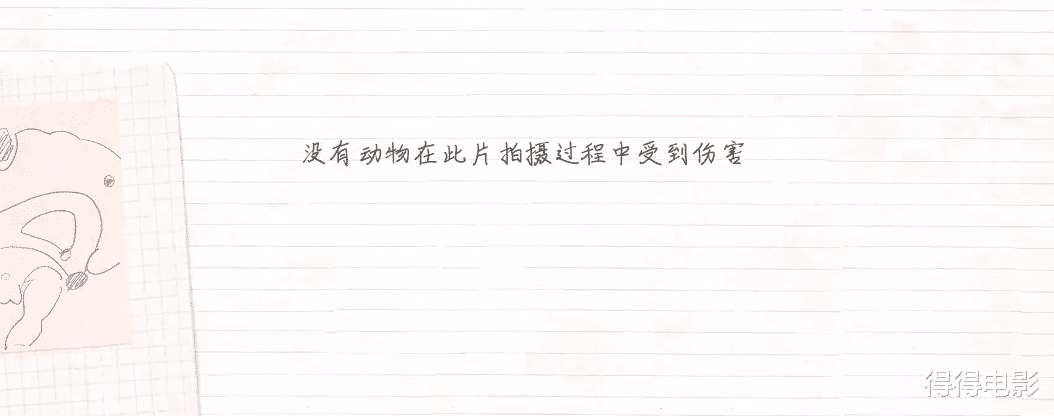 没有动物在此片拍摄过程中受到伤害
得得电影